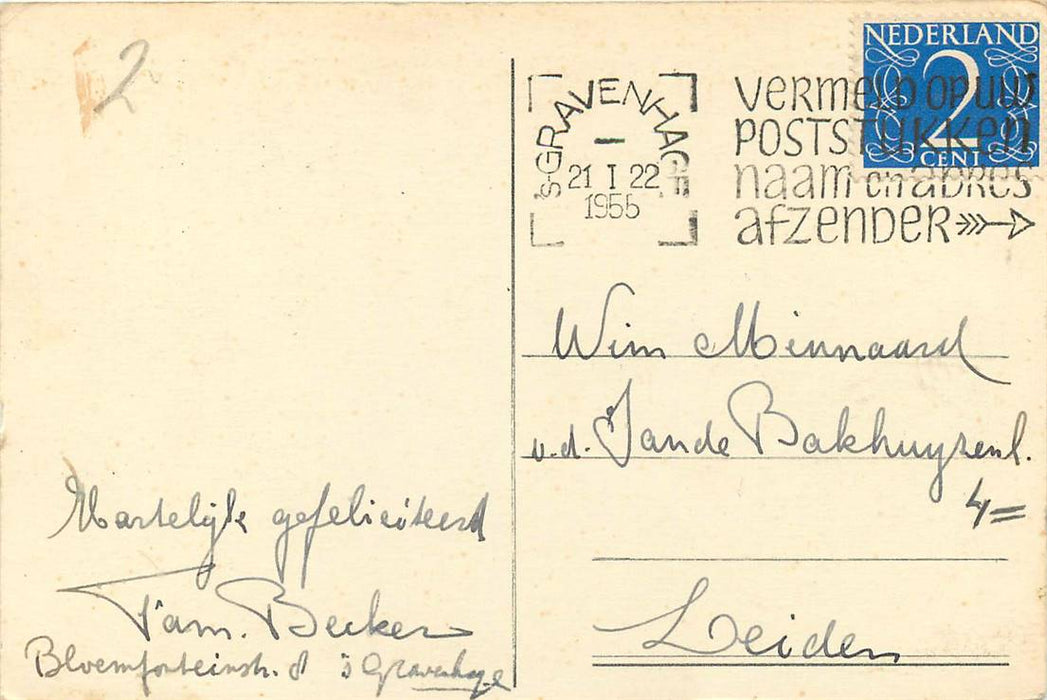 2
NEDERLAND
2
CENT
'S-GRAVENHAGE
21 I 22
1955
VERMELD OP UW
POSTSTUKKEN
NAAM en ADRES
AFZENDER
Wim Minnaard
v.d. Sande Bakhuyzenl.
4=
Leiden
Hartelijk gefeliciteerd
Fam. Becker
Bloemfonteinstr. 8 's Gravenhage